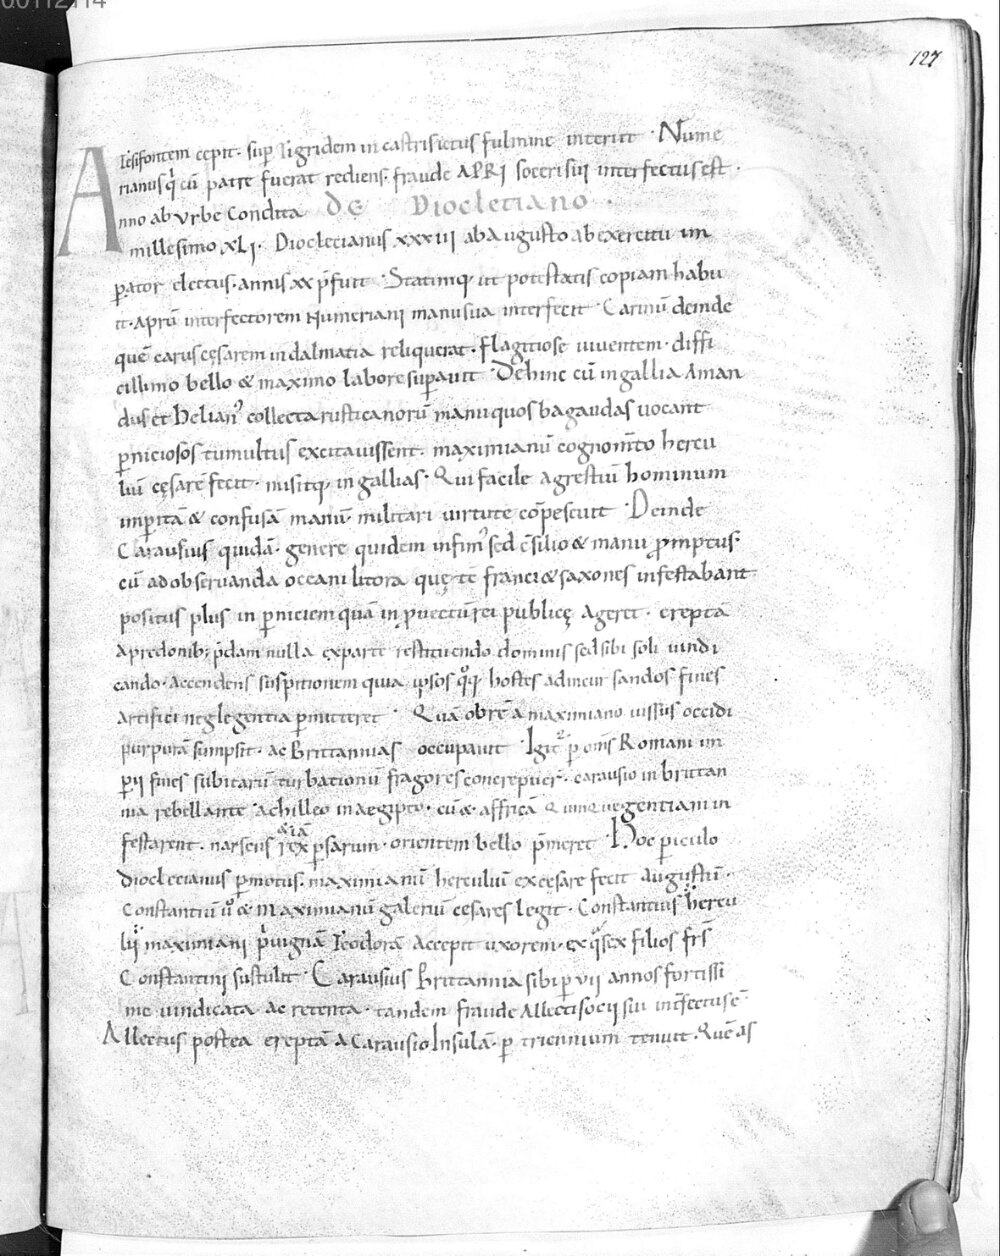 00112114
127
Tesifontem cepit · sup Tigridem in castris ictus fulmine interiit · Nume
rianus q cū patre fuerat rediens · fraude APRI soceri sui interfectus est ·
Anno ab Vrbe Condita DE Diocletiano
millesimo XLI · Dioclecianus XXXIII ab Augusto ab exercitu im
ꝑator electus · annis XX p̄fuit · Statimq; ut potestatis copiam habu
it · Aprū interfectorem Numeriani manu sua interfecit · Carinū deinde
quē carus cęsarem in dalmatia reliquerat · flagitiose uiuentem · diffi
cillimo bello & maximo labore suꝑauit · Dehinc cū in gallia Aman
dus et Helian' collecta rusticanorū manu quos bagaudas uocant
ꝑniciosos tumultus excitauissent · maximianū cognom̄to hercu
liū cęsarē fecit · misitq; in gallias · Qui facile agrestiū hominum
imꝑitā & confusā manū · militari uirtute cōpescuit · Deinde
Carausius quidā · genere quidem infim' sed c̄silio & manu p̄mptus ·
cū ad obseruanda oceani litora quę tē franci & saxones infestabant
positus plus in ꝑniciem quā in ꝓuectū rei publicę ageret · ereptā
a predonib; p̄dam nulla ex parte restituendo dominis sed sibi soli uindi
cando · Accendens suspitionem quia ipsos qq hostes ad incursandos fines
artifici neglegentia ꝑmitteret · Quā obrē a maximiano iussus occidi
purpurā sumpsit · ac Brittannias occupauit · Igit ꝑ om̄s Romani im
ꝑii fines subitarū turbationū fragores concrepuer · carausio in brittan
nia rebellante achilleo in aegipto · cū & affricā Quinquegentiani in
festarent · narseus rex ꝑsarum · orientem bello p̄meret · Hoc ꝑiculo
Dioclecianus ꝑmotus · maximianū herculiū ex cęsare fecit augustū ·
Constantiū u° & Maximianū galeriū cesares legit · Constantius hercu
lii maximiani p̄uignā Teodorā accepit uxorem · ex q sex filios frs
Constantini sustulit · Carausius Brittannia sibi ꝑ VII annos fortissi
me uindicata ac retenta · tandem fraude Allecti socii sui int̄fectus ē ·
Allectus postea ereptā a Carausio Insulā · ꝑ triennium tenuit · Quē as